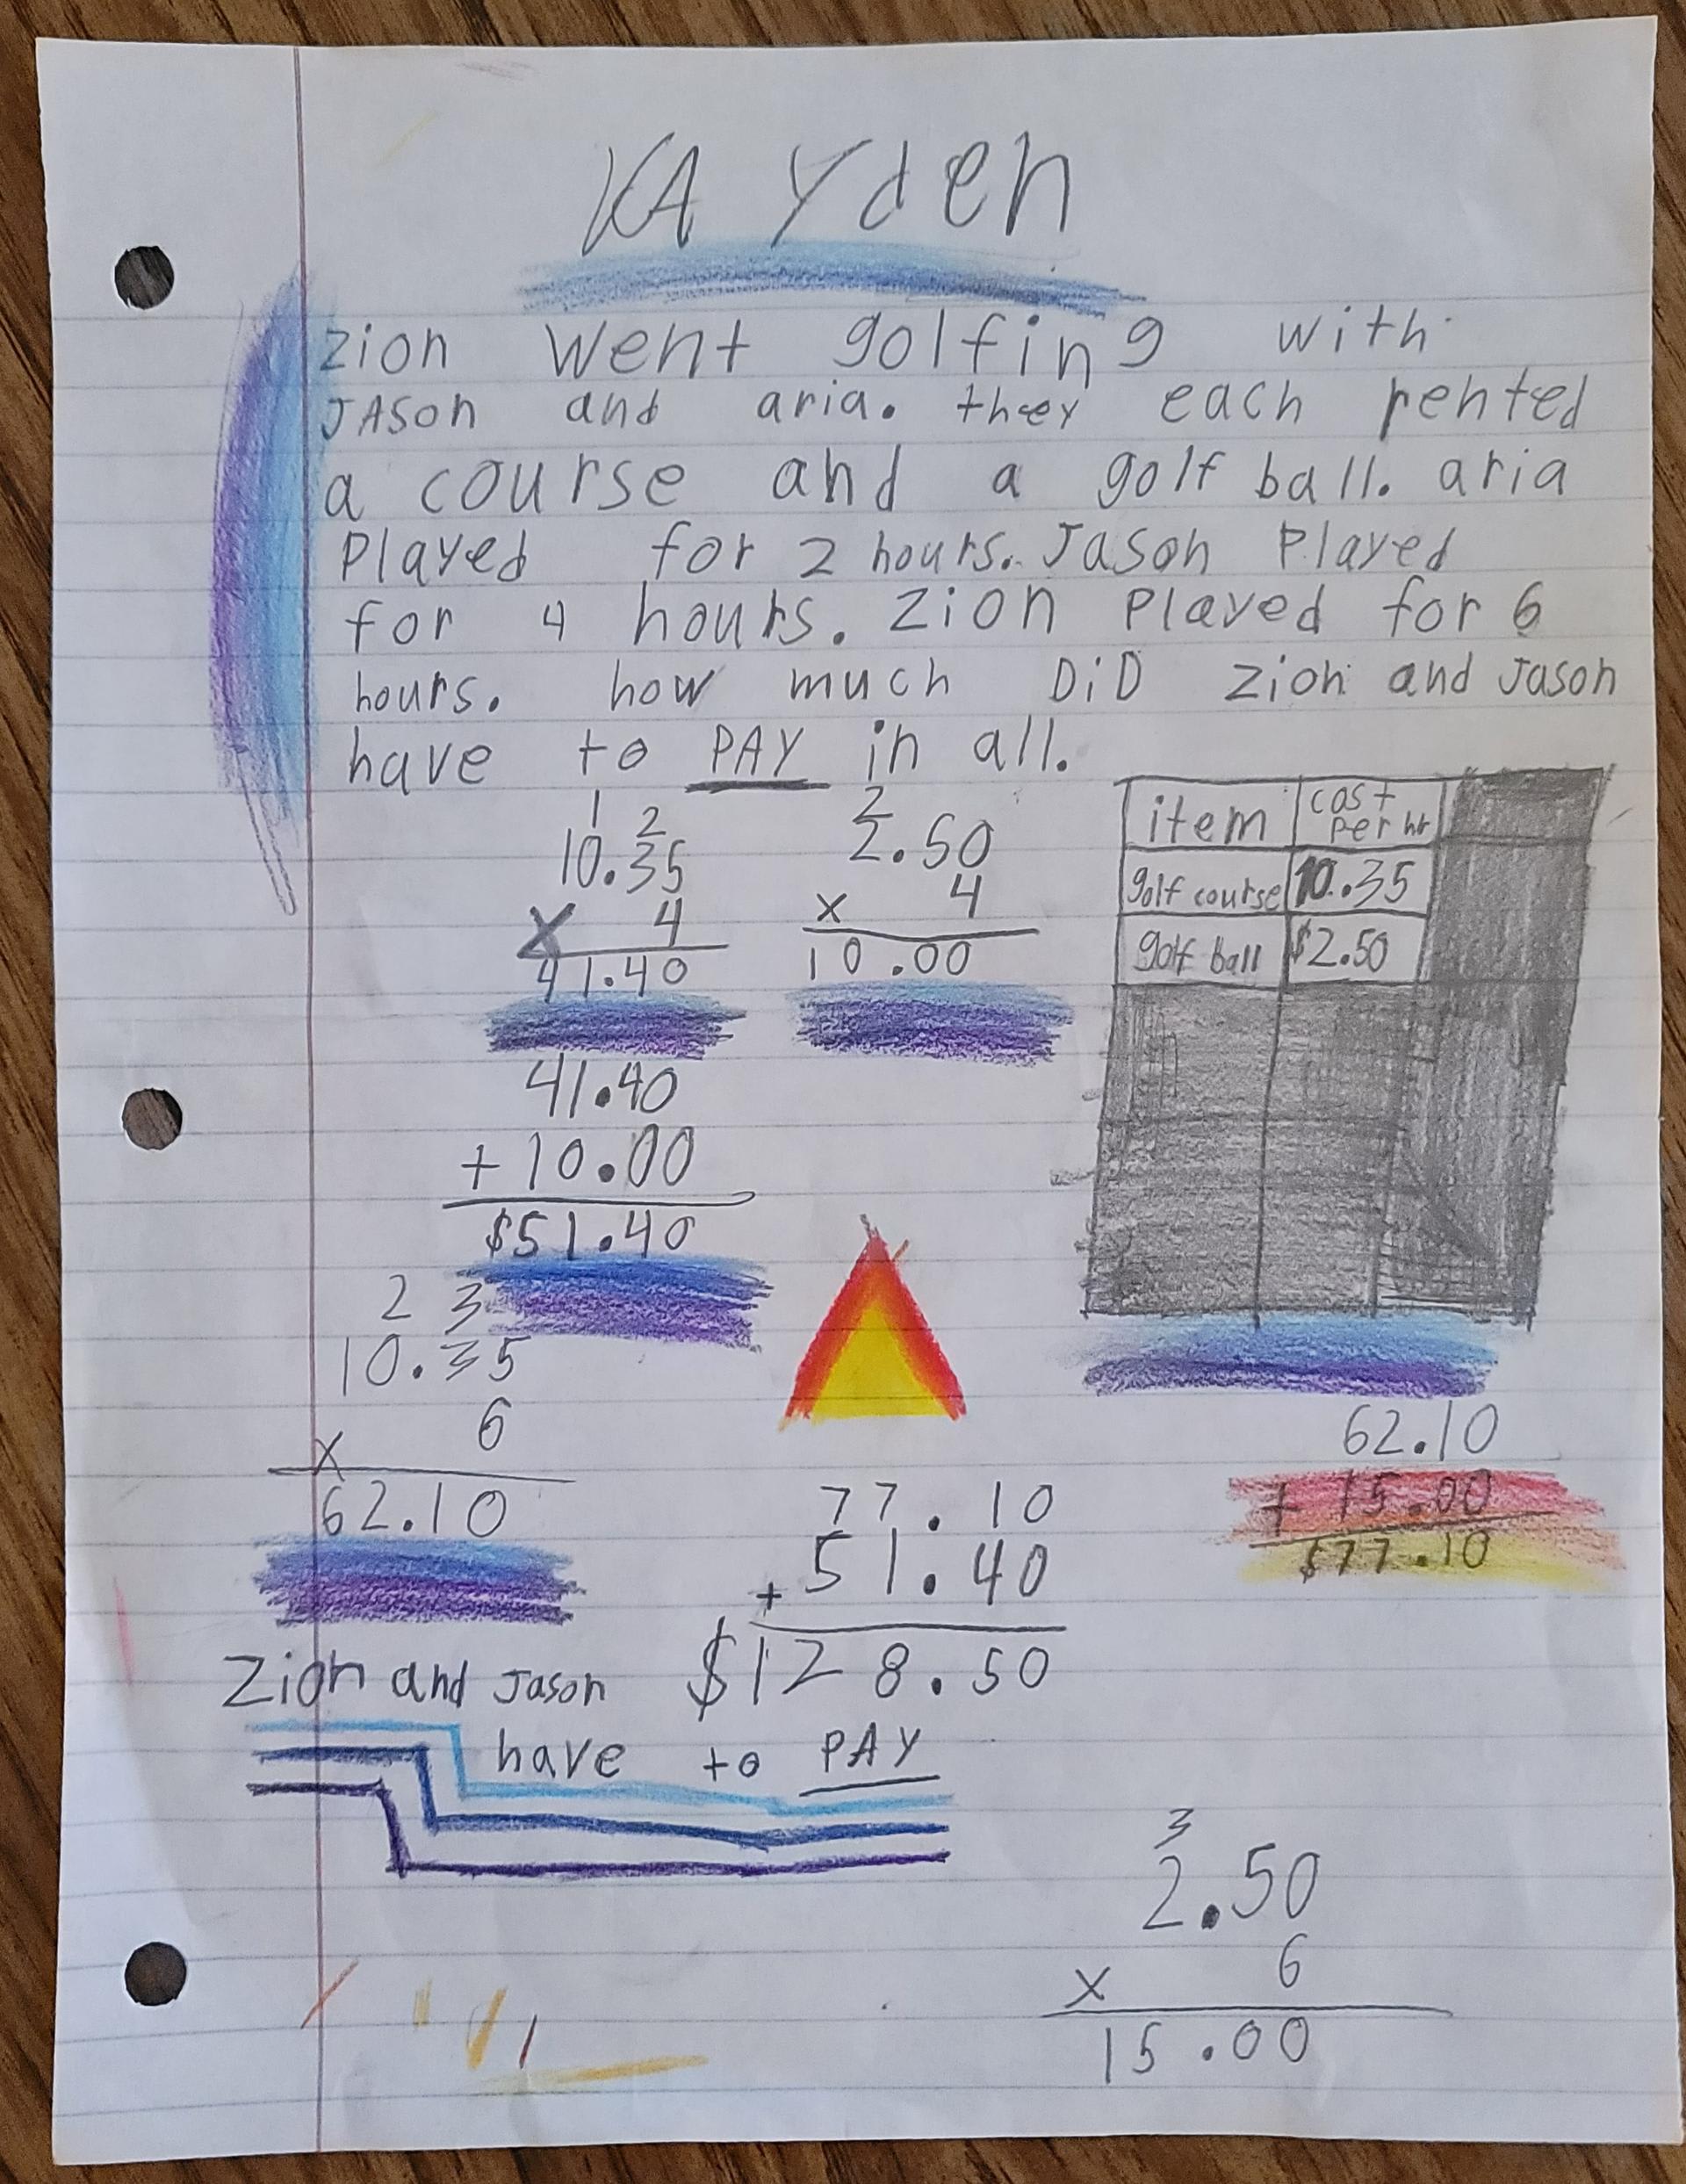 KAYden
Zion went golfing with
JAson and aria. they each rented
a course and a golf ball. aria
Played for 2 hours. Jason Played
for 4 hours. Zion Played for 6
hours. how much DiD Zion and Jason
have to PAY in all.
1 2
10.35
x 4
41.40
2
2.50
x 4
10.00
item cost per hr
golf course 10.35
golf ball $2.50
41.40
+ 10.00
$51.40
2 3
10.35
x 6
62.10
77.10
+ 51.40
$128.50
62.10
+ 15.00
$77.10
Zion and Jason
have to PAY
3
2.50
x 6
15.00